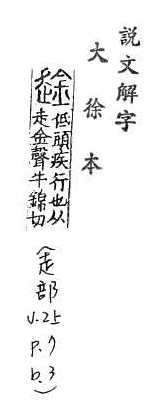 説文解字
大徐本
趛
低頭疾行也从
走金聲牛錦切
(走部
V.25
P.7
b.3)